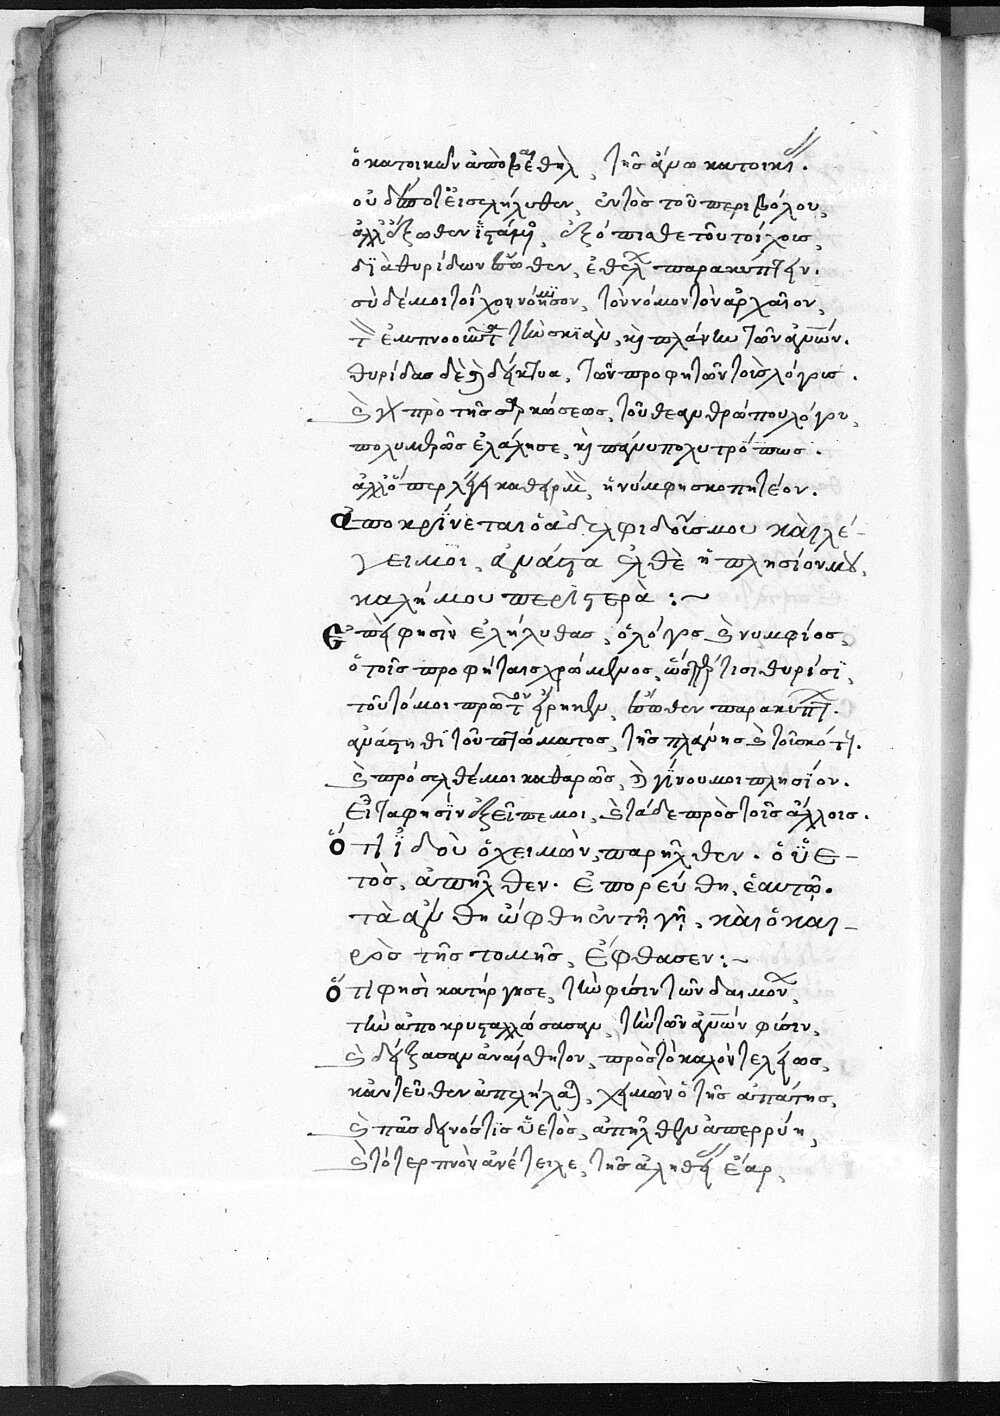 ὁ κατοικῶν ἀπὸ βαιθὴλ, τῆς ἄνω κατοικίας.
οὐδέποτε εἰσελήλυθεν, ἐντὸς τοῦ περιβόλου,
ἀλλ' ἔξωθεν ἱστάμενος, ἐξόπισθε τοῦ τοίχοις,
διὰ θυρίδων ἔσωθεν, ἔθελε παρακύπτειν.
σὺ δέ μοι τοῖχον νόμισον, τὸν νόμον τὸν ἀρχαῖον,
τὸν ἔμπροσθεν τὴν σκιὰν, καὶ πλάνην τῶν ἀνθρώπων.
θυρίδας δὲ καὶ δίκτυα, τῶν προφητῶν τοὺς λόγους.
καὶ γὰρ πρὸ τῆς σαρκώσεως, τοῦ θεανθρώπου λόγου,
πολυμερῶς ἐλάλησε, καὶ πάνυ πολυτρόπως.
ἀλλ' ὅπερ λέγει καθ' εἱρμὸν, ἡ νύμφη σκοπητέον.
Ἀποκρίνεται ὁ ἀδελφιδοῦς μου καὶ λέ-
γει μοι, ἀνάστα ἐλθὲ ἡ πλησίον μου,
καλή μου περιστερὰ :~
Ἐπεί φησιν ἐλήλυθας, ὁ λόγος ὁ νυμφίος,
ὁ τοῖς προφήταις χρώμενος, ὥσπερ τισι θυρίσι,
τοῦ νόμου πρῶτον εἴρηκεν, ἔσωθεν παρακύπτειν.
ἀνάστηθι τοῦ πτώματος, τῆς πλάνης καὶ τοῦ σκότους.
καὶ πρόσελθέ μοι καθαρῶς, καὶ γίνου μοι πλησίον.
Εἶτά φησιν ἐξεῖπέ μοι, καὶ τάδε πρὸς τοῖς ἄλλοις.
Ὅτι ἰδοὺ ὁ χειμὼν, παρῆλθεν. ὁ ὑε-
τὸς, ἀπῆλθεν. ἐπορεύθη, ἑαυτῷ.
τὰ ἄνθη ὤφθη ἐν τῇ γῇ, καὶ ὁ και-
ρὸς τῆς τομῆς, ἔφθασεν :~
Ὅτι φησὶ κατήργησε, τὴν φύσιν τῶν δαιμόνων,
τὴν ἀποκρυσταλλώσασαν, τὴν τῶν ἀνθρώπων φύσιν,
καὶ δείξασαν ἀναίσθητον, πρὸς τὸ καλὸν τελείως,
κἀντεῦθεν ἀπελήλαται, χειμὼν ὁ τῆς ἀπάτης,
καὶ πᾶς δεινότατος ὑετὸς, ἀπῆλθεν ἀπερρύη,
καὶ τὸ τερπνὸν ἀνέτειλε, τῆς ἀληθείας ἔαρ,